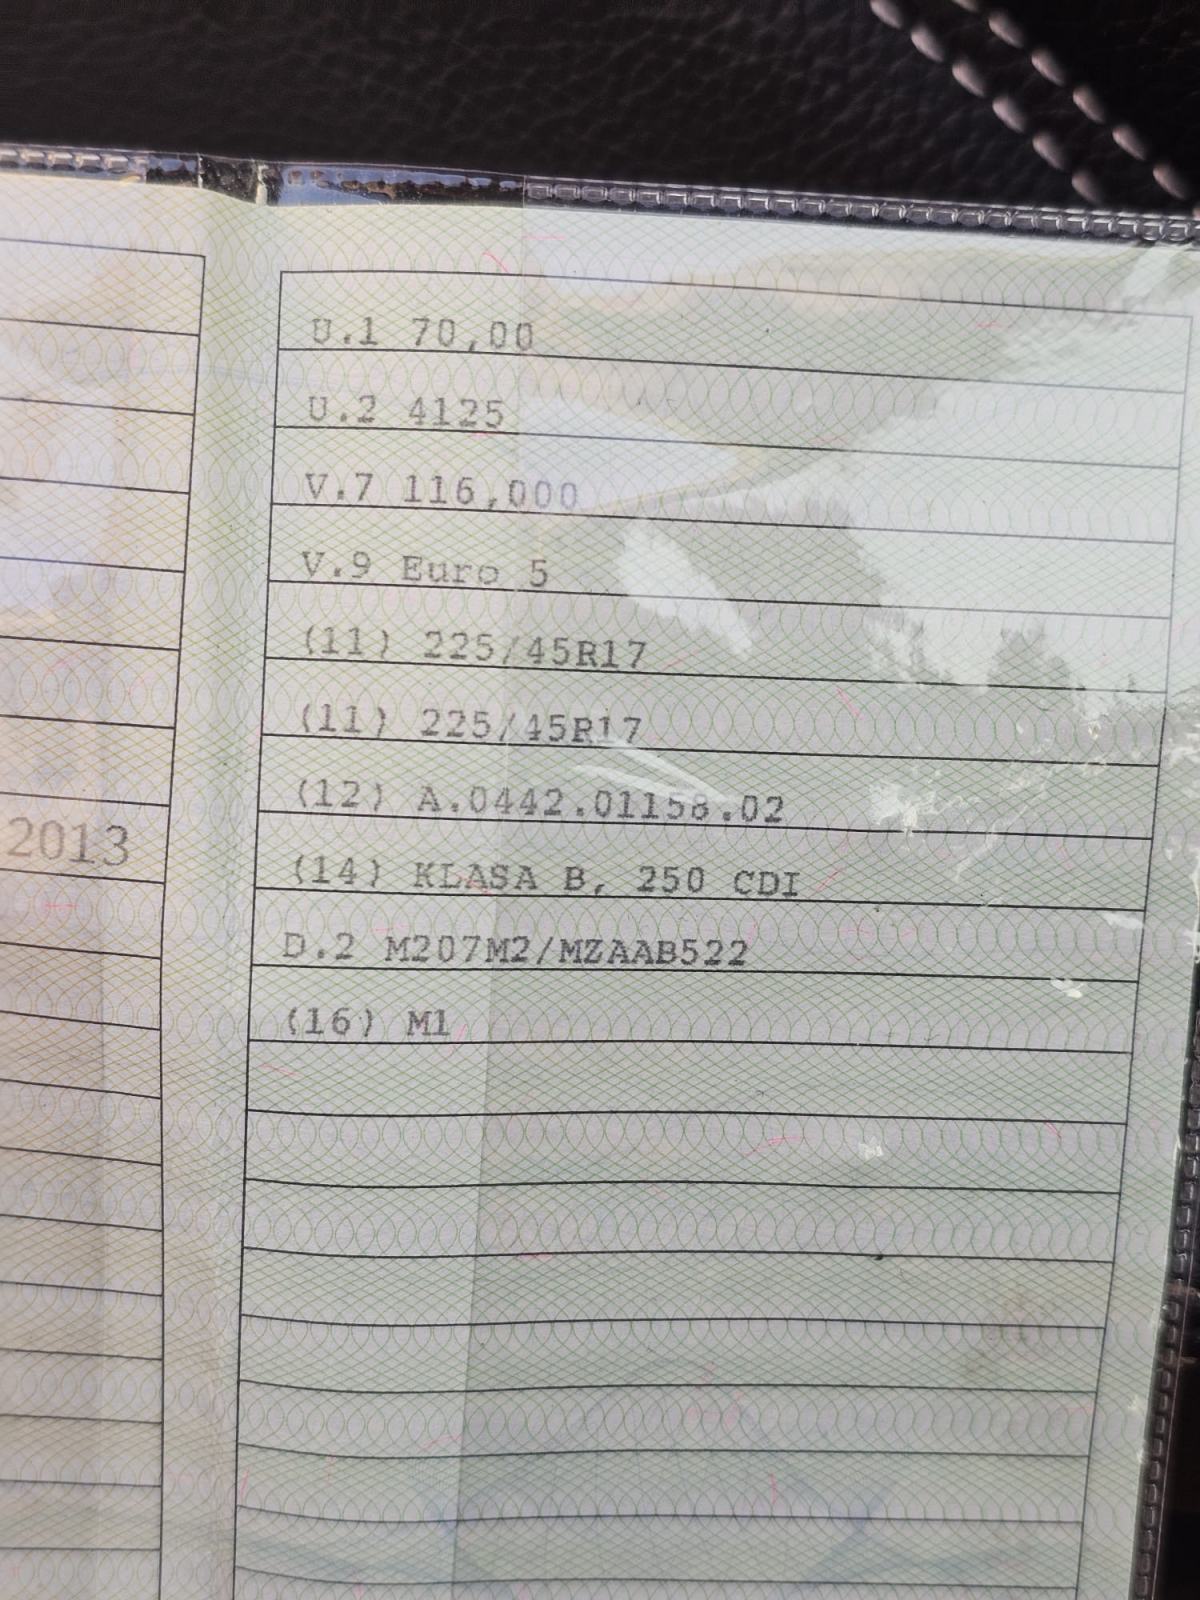 U.1 70,00
U.2 4125
V.7 116,000
V.9 Euro 5
(11) 225/45R17
(11) 225/45R17
(12) A.0442.01158.02
2013
(14) KLASA B, 250 CDI
D.2 M207M2/MZAAB522
(16) M1